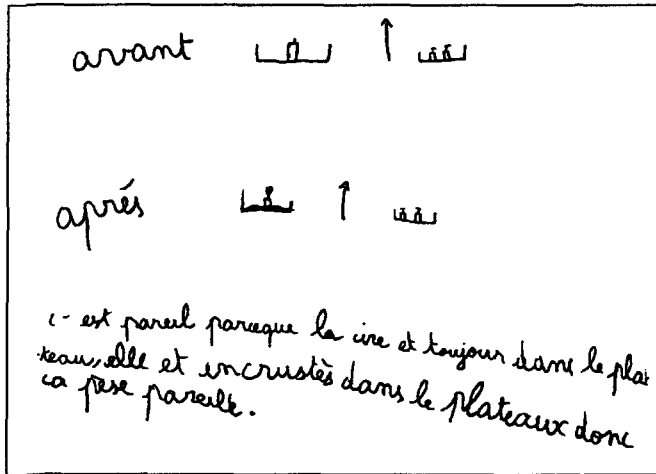 avant
aprés
c- est pareil parceque la cire et toujour dans le plat
teau, elle et incrustès dans le plateaux donc
ca pèse pareille.